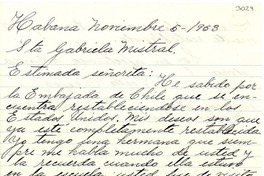 3029
Habana Noviembre 5-1953
Sta Gabriela Mistral,
Estimada señorita: He sabido por
la Embajada de Chile que se en-
cuentra restableciendose en los
Estados Unidos. Mis deseos son que
ya esté completamente restablecida
Yo tengo una hermana que siem-
pre me habla mucho de usted y
la recuerda cuando ella estuvo
en la escuela